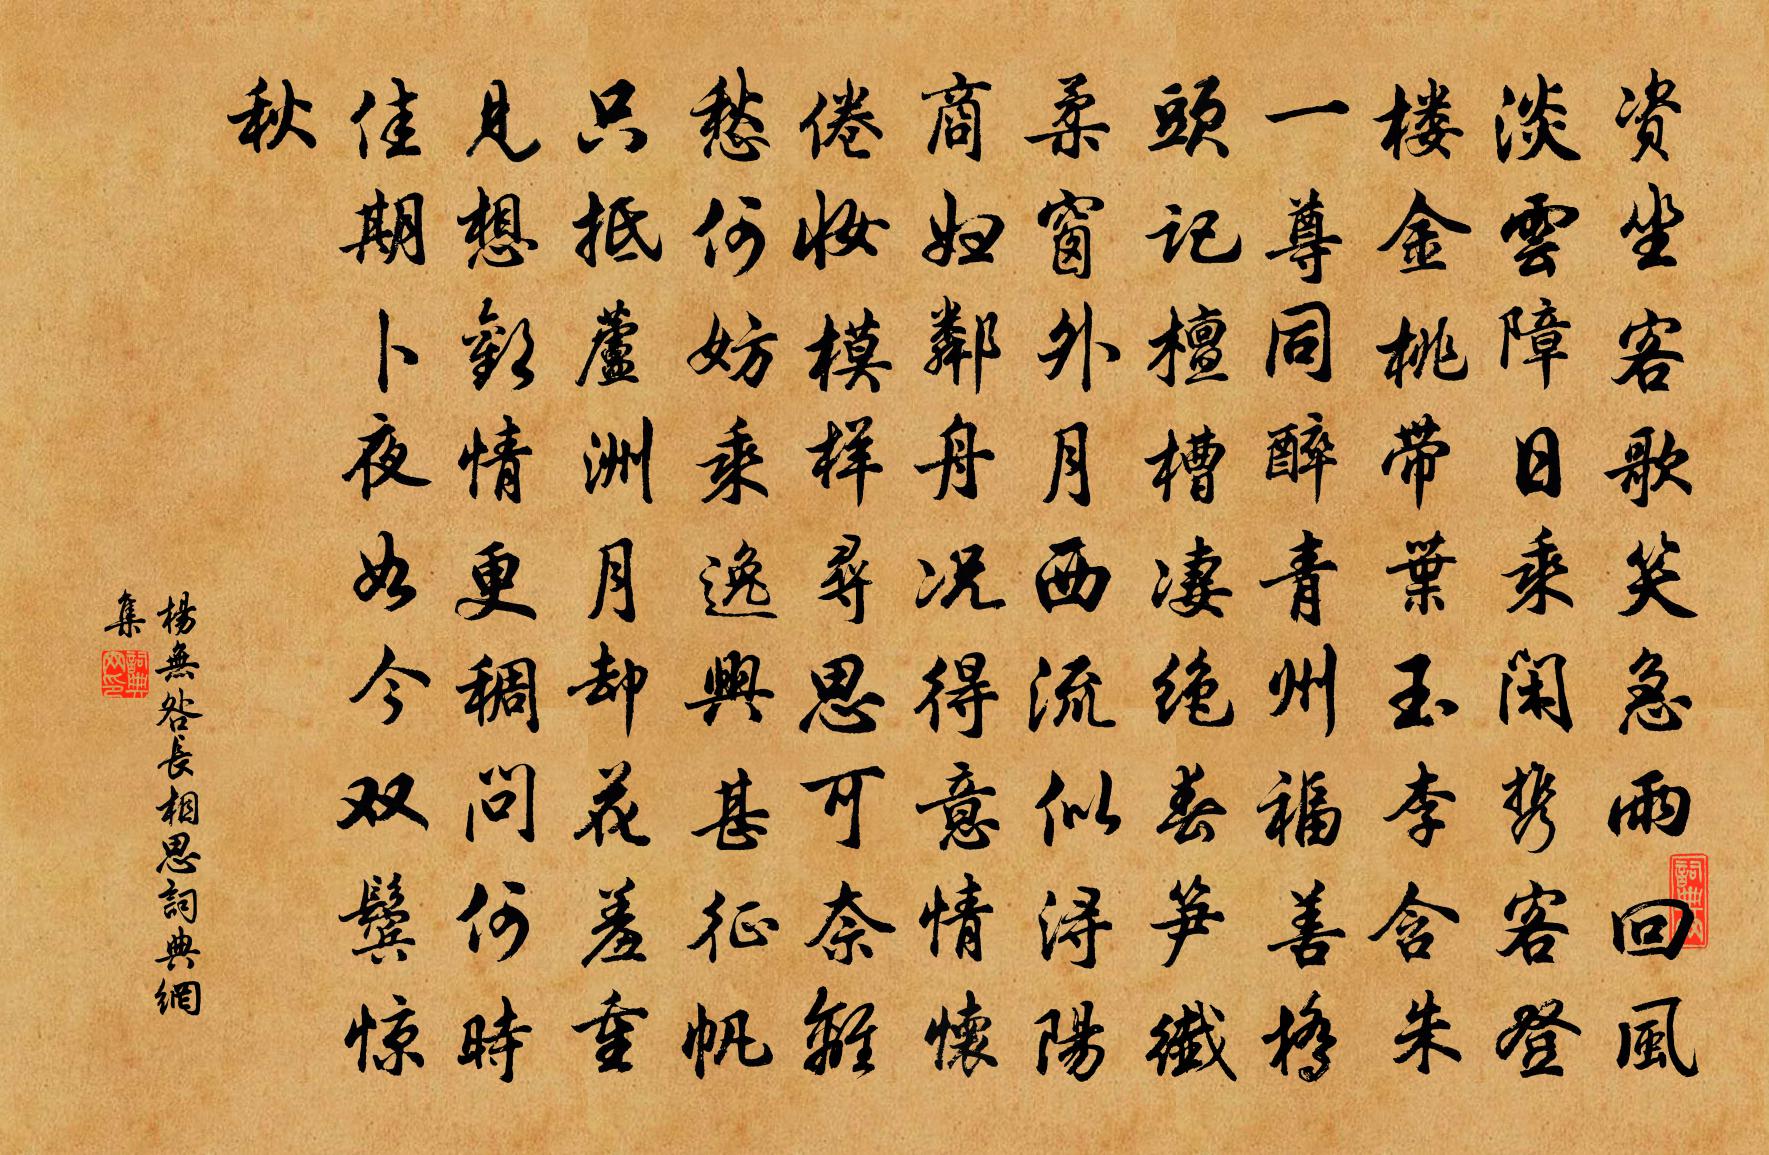 资坐客歌笑急雨回風
淡雲障日乘闲携客登
楼金桃带葉玉李含朱
一尊同醉青州福善橋
頭记檀槽凄绝春笋纖
柔窗外月西流似浔陽
商妇鄰舟况得意情懷
倦妆模样尋思可奈離
愁何妨乘逸興甚征帆
只抵蘆洲月却花羞重
見想歡情更稠问何時
佳期卜夜如今双鬓惊
秋
楊無咎長相思詞典網
集